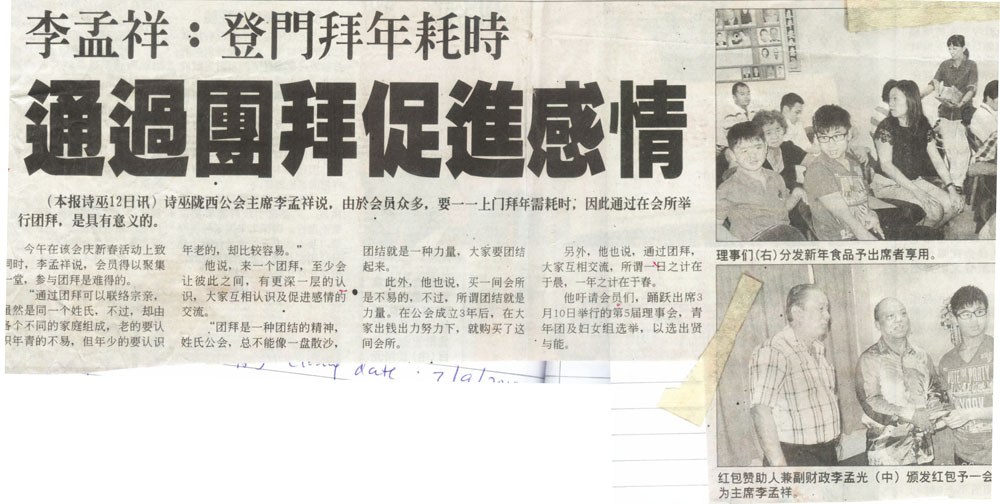 李孟祥：登門拜年耗時
通過團拜促進感情
（本报诗巫12日讯）诗巫陇西公会主席李孟祥说，由於会员众多，要一一上门拜年需耗时，因此通过在会所举
行团拜，是具有意义的。
今午在该会庆新春活动上致
同时，李孟祥说，会员得以聚集
一堂，参与团拜是难得的。
“通过团拜可以联络宗亲，
虽然是同一个姓氏，不过，却由
各个不同的家庭组成，老的要认
识年青的不易，但年少的要认识
年老的，却比较容易。”
他说，来一个团拜，至少会
让彼此之间，有更深一层的认
识，大家互相认识及促进感情的
交流。
“团拜是一种团结的精神，
姓氏公会，总不能像一盘散沙，
团结就是一种力量，大家要团结
起来。
此外，他也说，买一间会所
是不易的，不过，所谓团结就是
力量。在公会成立3年后，在大
家出钱出力努力下，就购买了这
间会所。
另外，他也说，通过团拜，
大家互相交流，所谓一日之计在
于晨，一年之计在于春。
他吁请会员们，踊跃出席3
月10日举行的第5届理事会，青
年团及妇女组选举，以选出贤
与能。
理事们(右)分发新年食品予出席者享用。
红包赞助人兼副财政李孟光（中）颁发红包予一会
为主席李孟祥
date